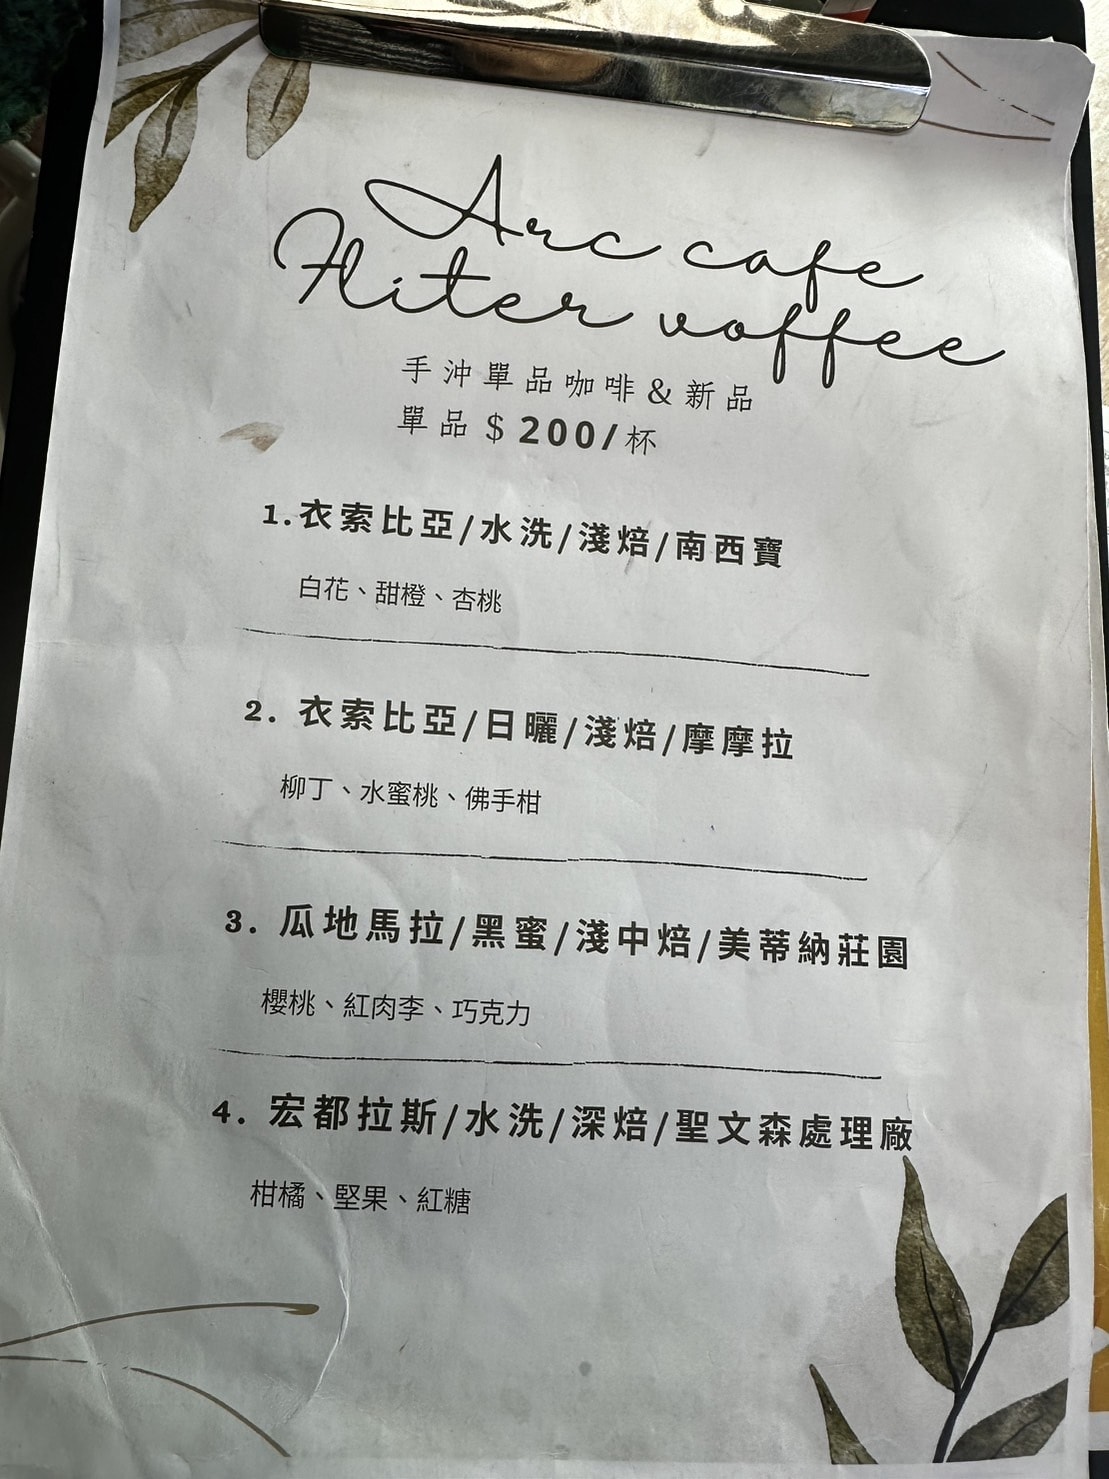 Arc cafe
Fliter voffee
手沖單品咖啡&新品
單品$200/杯
1.衣索比亞/水洗/淺焙/南西寶
白花、甜橙、杏桃
2. 衣索比亞/日曬/淺焙/摩摩拉
柳丁、水蜜桃、佛手柑
3. 瓜地馬拉/黑蜜/淺中焙/美蒂納莊園
櫻桃、紅肉李、巧克力
4. 宏都拉斯/水洗/深焙/聖文森處理廠
柑橘、堅果、紅糖